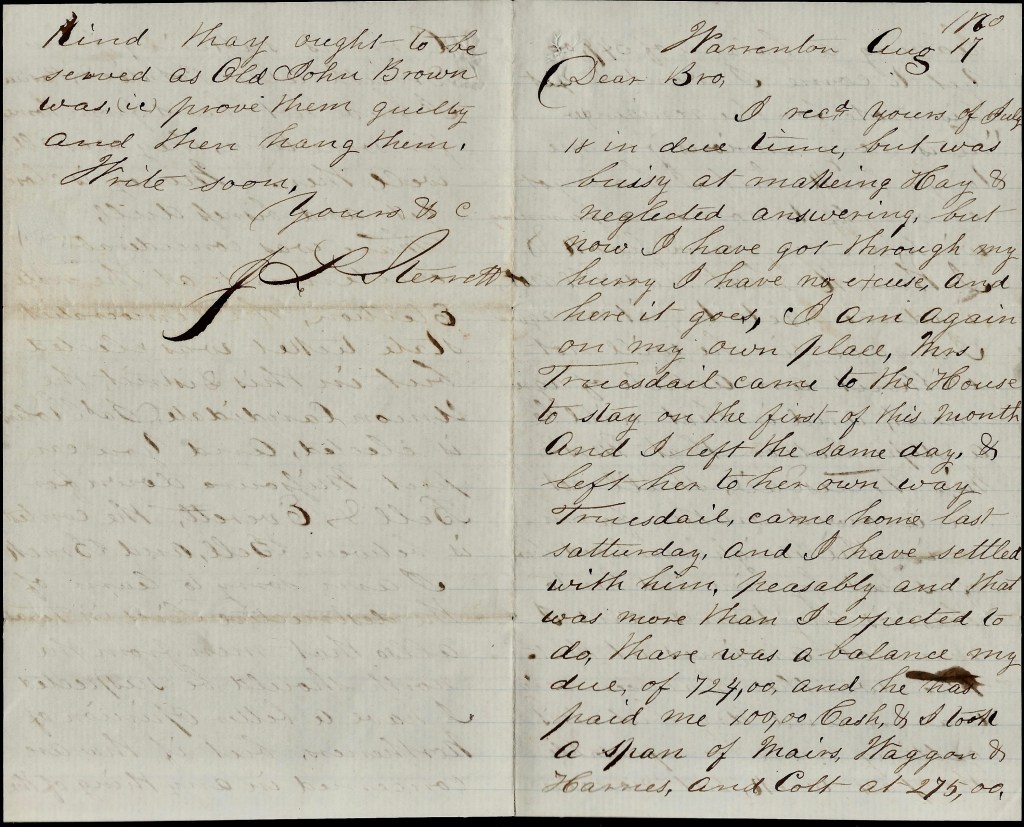 1860
Warrenton Aug 17
Dear Bro,
I recd yours of July
18 in due time, but was
buissy at makeing Hay &
neglected answering, but
now I have got through my
hurry I have no excuse, and
here it goes, I am again
on my own place, Mrs
Truesdail came to the House
to stay on the first of this Month
And I left the same day, &
left her to her own way
Truesdail, came home last
satturday, and I have settled
with him, peasably and that
was more than I expected to
do, thare was a balance my
due, of 724,00, and he has
paid me 100,00 Cash, & I took
a span of Mairs, Waggon &
Harnes, and Colt at 275,00,
Kind thay ought to be
served as Old John Brown
was, (ie) prove them guilty
and then hang them.
Write soon,
Yours & c
J S Sterrett